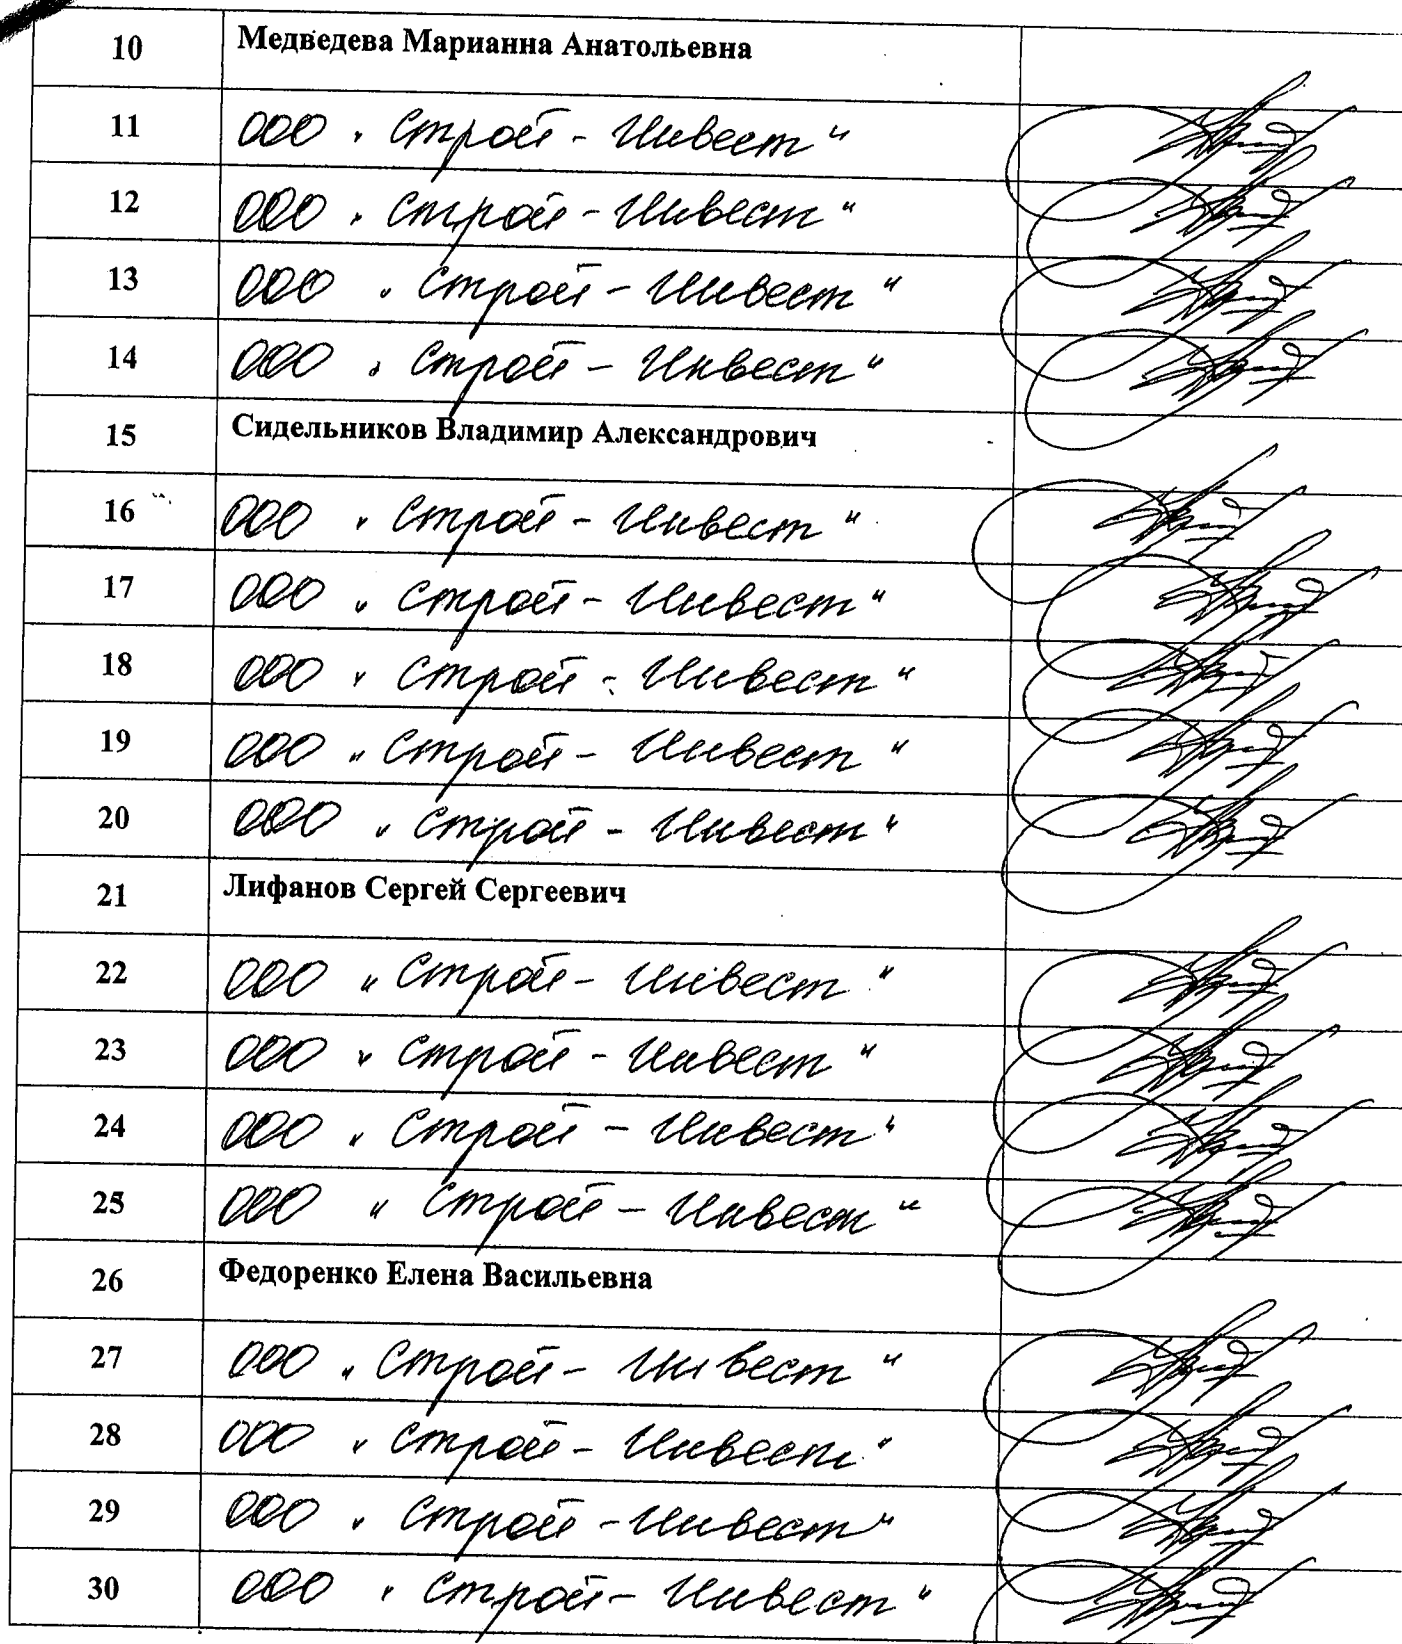 10 Медведева Марианна Анатольевна
11 ООО "Строй-Инвест"
12 ООО "Строй-Инвест"
13 ООО "Строй-Инвест"
14 ООО "Строй-Инвест"
15 Сидельников Владимир Александрович
16 ООО "Строй-Инвест"
17 ООО "Строй-Инвест"
18 ООО "Строй-Инвест"
19 ООО "Строй-Инвест"
20 ООО "Строй-Инвест"
21 Лифанов Сергей Сергеевич
22 ООО "Строй-Инвест"
23 ООО "Строй-Инвест"
24 ООО "Строй-Инвест"
25 ООО "Строй-Инвест"
26 Федоренко Елена Васильевна
27 ООО "Строй-Инвест"
28 ООО "Строй-Инвест"
29 ООО "Строй-Инвест"
30 ООО "Строй-Инвест"